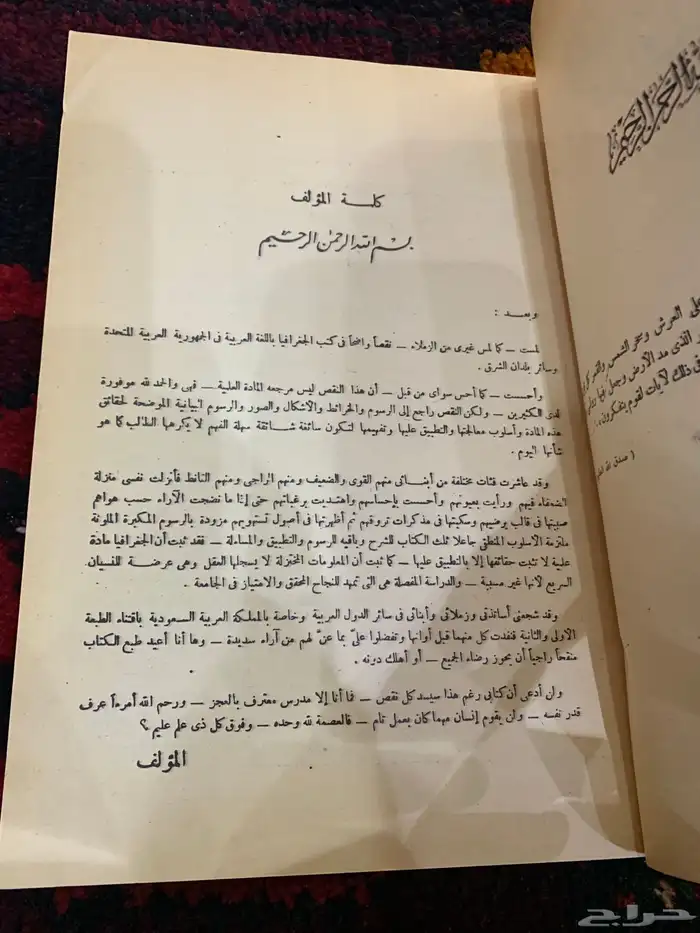 كلمة المؤلف
بسم الله الرحمن الرحيم
وبعد :
لمست — كما لمس غيرى من الزملاء — نقصاً واضحاً فى كتب الجغرافيا باللغة العربية فى الجمهورية العربية المتحدة
وسائر بلدان الشرق .
وأحسست — كما أحس سواى من قبل — أن هذا النقص ليس مرجعه المادة العلمية — فهى والحمد لله موفورة
لدى الكثيرين — ولكن النقص راجع إلى الرسوم والخرائط والأشكال والصور والرسوم البيانية الموضحة لحقائق
هذه المادة وأسلوب معالجتها والتطبيق عليها وتفهيمها لتكون سائغة شائقة سهلة الفهم لا يكرهها الطالب كما هو
شأنها اليوم .
وقد عاشرت فئات مختلفة من أبنائى منهم القوى والضعيف ومنهم الراجى ومنهم القانط فأنزلت نفسى منزلة
الضعفاء فيهم ورأيت بعيونهم وأحسست بإحساسهم واهتديت برغباتهم حتى إذا ما نضجت الآراء حسب هواهم
صببتها فى قالب يرضيهم وسكبتها فى مذكرات تروقهم ثم أظهرتها فى أصول تستهويهم مزودة بالرسوم المكبرة الملونة
ملتزمة الأسلوب المنطقى جاعلا ثلث الكتاب للشرح وباقيه للرسوم والتطبيق والمسألة — فقد ثبت أن الجغرافيا مادة
علمية لا تثبت حقائقها إلا بالتطبيق عليها — كما ثبت أن المعلومات المختزلة لا يسجلها العقل وهى عرضة للنسيان
السريع لأنها غير مسببة — والدراسة المفصلة هى التى تمهد للنجاح المحقق والامتياز فى الجامعة .
وقد شجعنى أساتذتى وزملائى وأبنائى فى سائر الدول العربية وخاصة بالمملكة العربية السعودية باقتناء الطبعة
الأولى والثانية فنفدت كل منهما قبل أوانها وتفضلوا علىَّ بما عنَّ لهم من آراء سديدة — وها أنا أعيد طبع الكتاب
منقحاً راجياً أن يحوز رضاء الجميع — أو أهلك دونه .
ولن أدعى أن كتابى رغم هذا سيسد كل نقص — فما أنا إلا مدرس معترف بالعجز — ورحم الله أمرءاً عرف
قدر نفسه — ولن يقوم إنسان مهما كان بعمل تام — فالعصمة لله وحده — وفوق كل ذى علم عليم ؟
المؤلف
الرحمن الرحيم
العرش وسخر الشمس والقمر
الذى مد الأرض وجعل فيها
ذلك لآيات لقوم يتفكرون .
( صدق الله
حراج